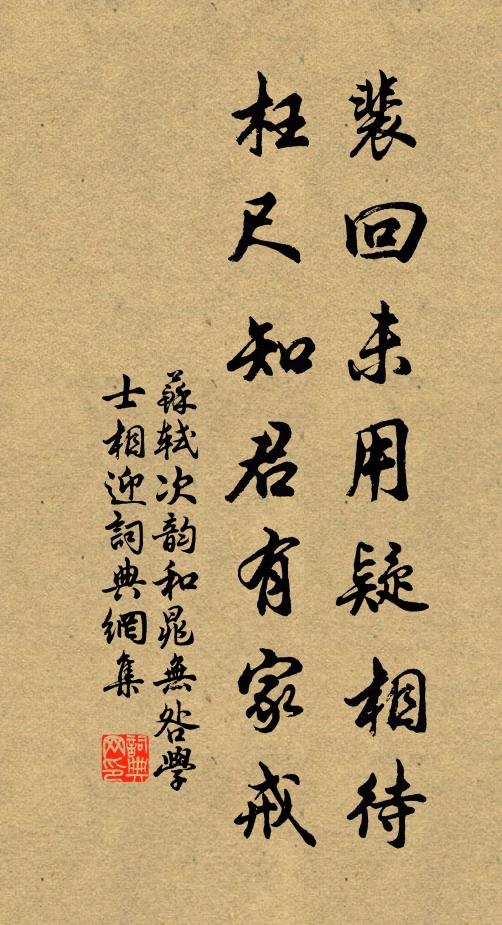 裴回未用疑相待
枉尺知君有家戒
蘇軾次韵和晁無咎學
士相迎詞典網集
詞典
网印